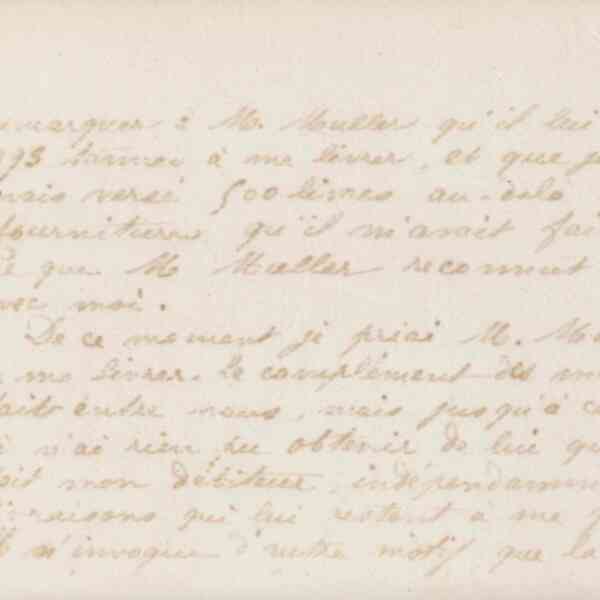 marquer à M. Muller qu'il lui
993 tonnes à me livrer, et que j
mais versé 500 livres au-delà
fournitures qu'il m'avait fai
ce que M Muller reconnut
avec moi.
De ce moment je priai M. Mu
à me livrer le complément des m
faits entre nous, mais jusqu'à c
je n'ai rien pu obtenir de lui qu
soit mon débiteur, indépendamm
livraisons qui lui restent à me f
Il n'invoque d'autre motif que la